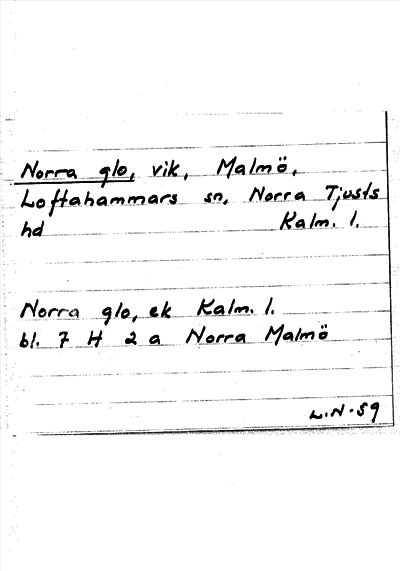 Norra glo, vik, Malmö,
Loftahammars sn, Norra Tjusts
hd Kalm. l.
Norra glo, ek Kalm. l.
bl. 7 H 2 a Norra Malmö
L.N.59